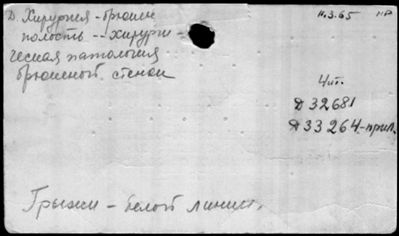 Д. Хирургия - брюшн.
полость -- хирурги-
ческая патология
брюшной стенки
н.3.65
Чит.
Д 32681
Д 33264-прил.
Грыжи - белой линии.